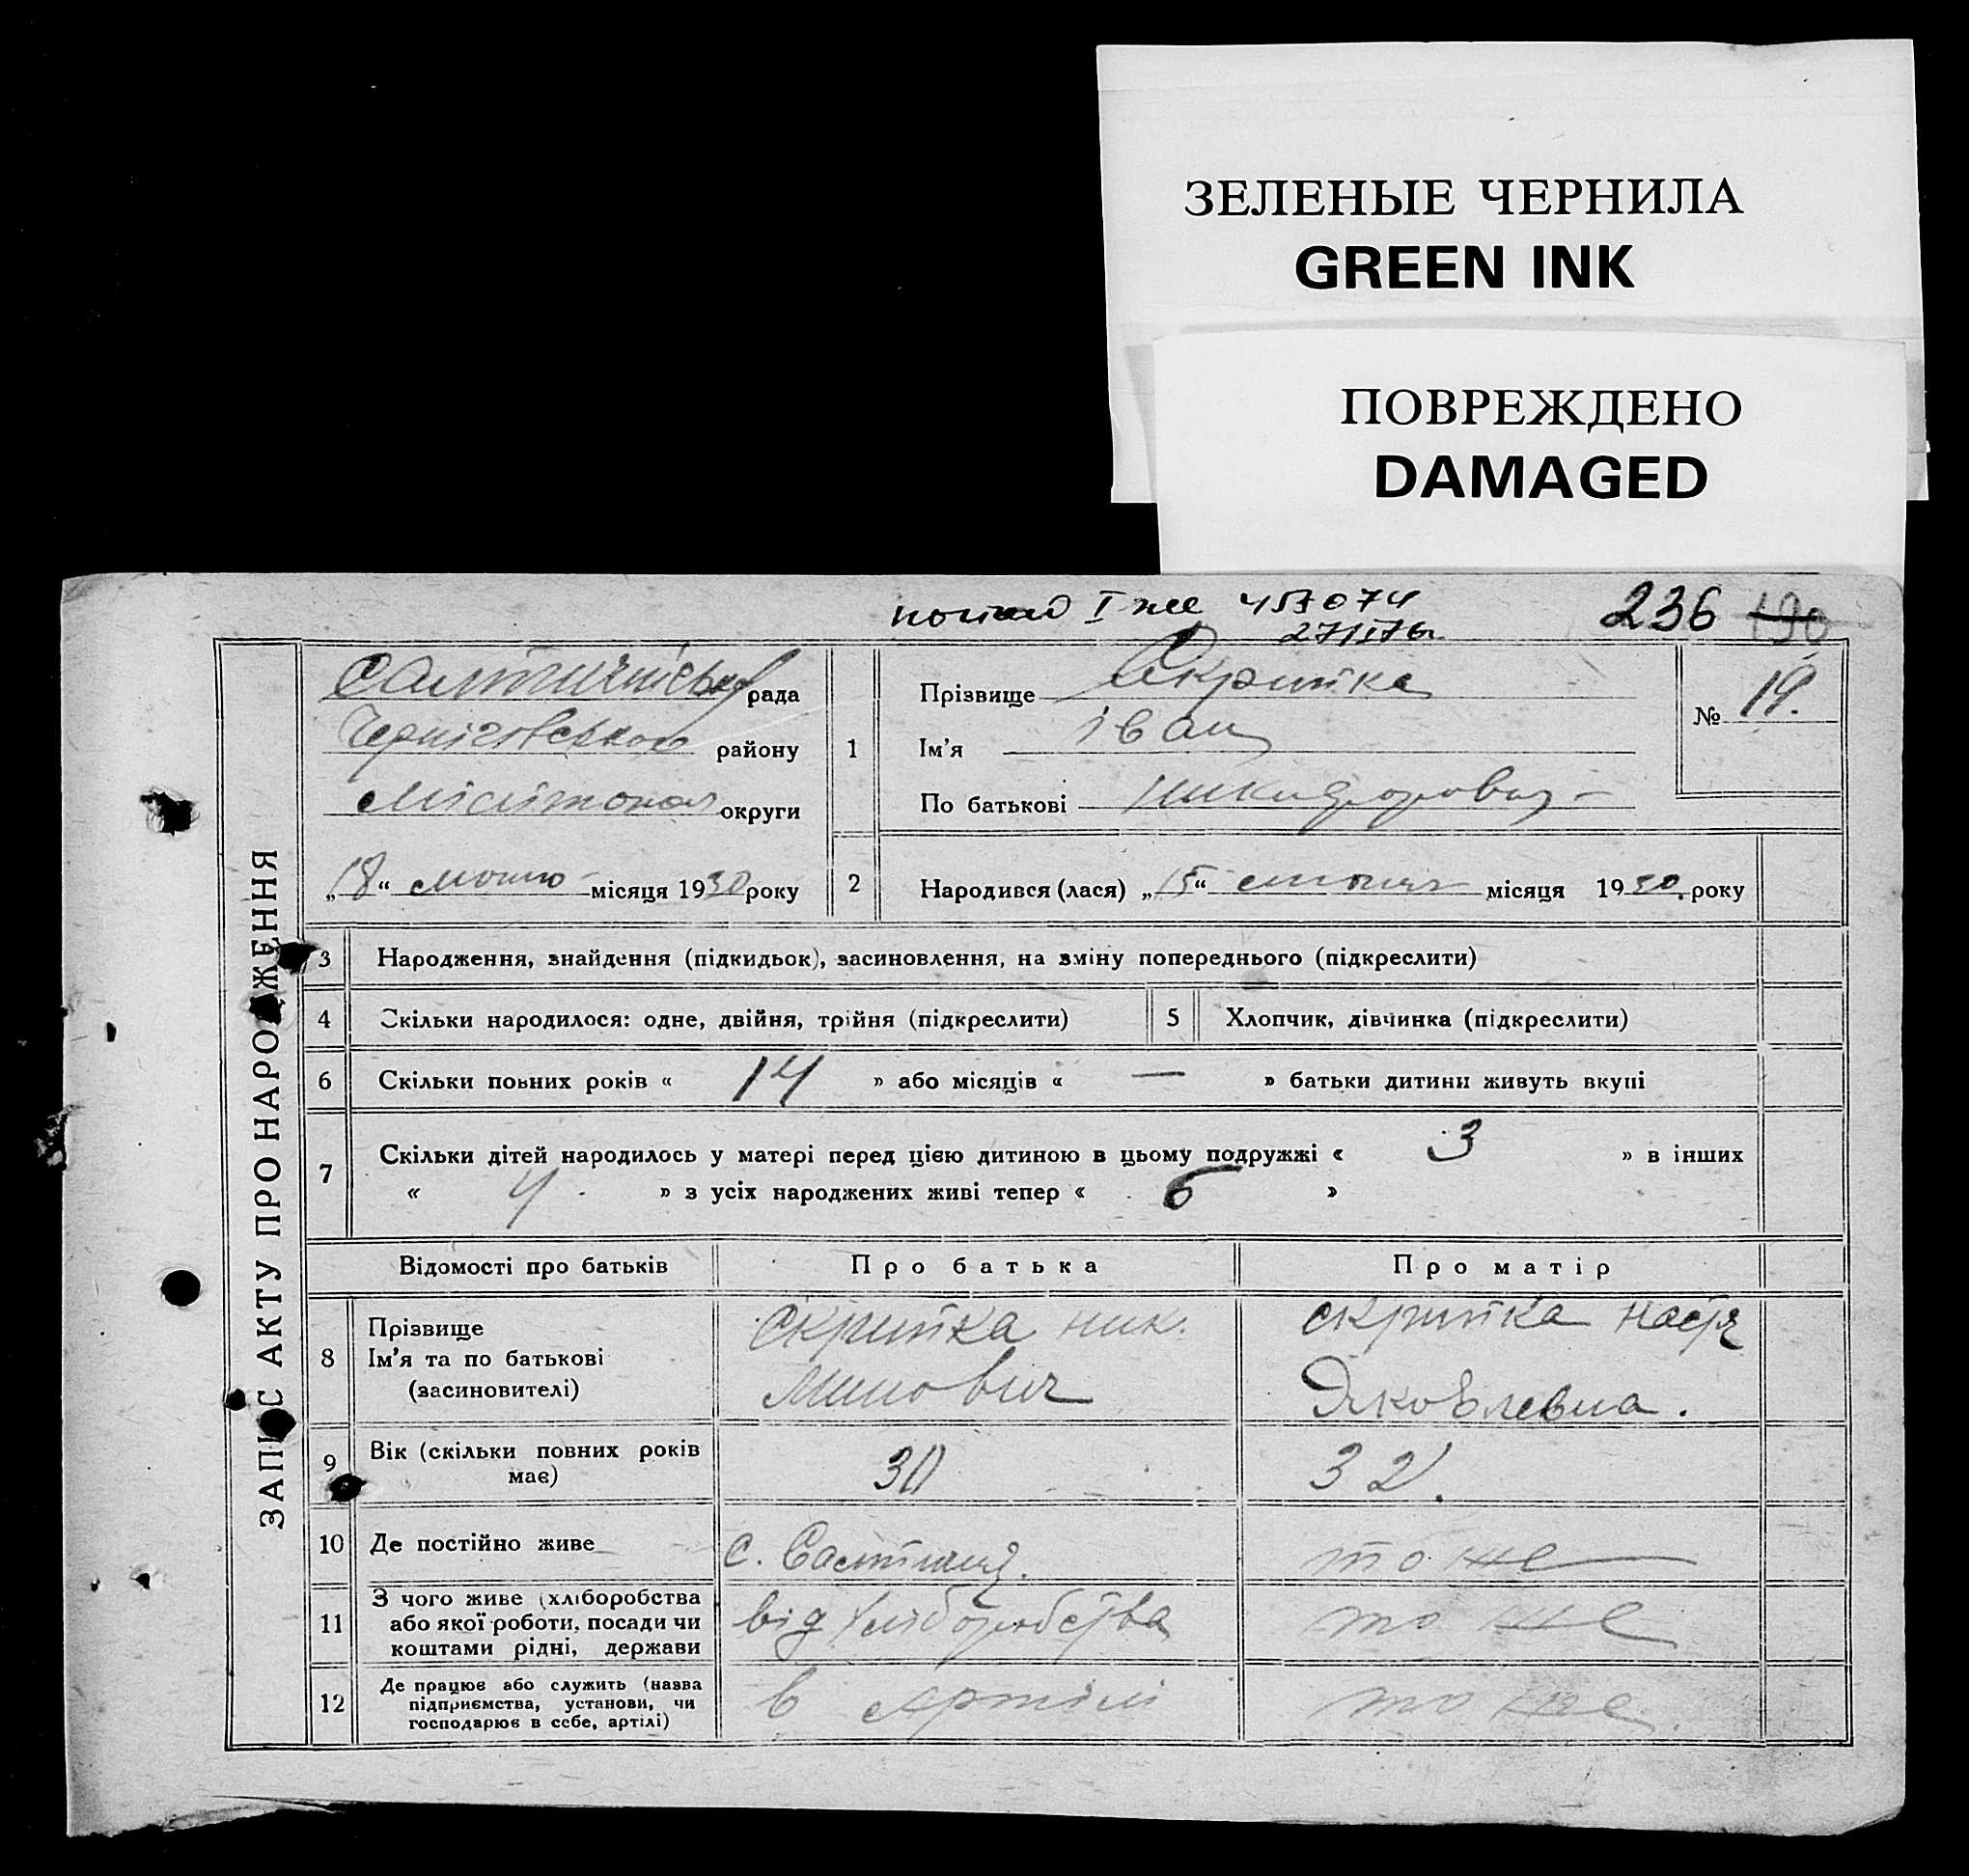 ЗЕЛЕНЫЕ ЧЕРНИЛА
GREEN INK
ПОВРЕЖДЕНО
DAMAGED
I же
236 190
ЗАПИС АКТУ ПРО НАРОДЖЕННЯ
рада
Чернігівського району
округи
„18“ місяця 1930 року
1
Прізвище Скрипка
Ім'я Іван
По батькові Никифорович
№ 19.
2
Народився (лася) „15“ місяця 1930 року
3 Народження, знайдення (підкидьок), засиновлення, на зміну попереднього (підкреслити)
4 Скільки народилося: одне, двійня, трійня (підкреслити) 5 Хлопчик, дівчинка (підкреслити)
6 Скільки повних років « 14 » або місяців « — » батьки дитини живуть вкупі
7 Скільки дітей народилось у матері перед цією дитиною в цьому подружжі « 3 » в інших
« 4 » з усіх народжених живі тепер « 6 »
Відомості про батьків Про батька Про матір
8 Прізвище
Ім'я та по батькові
(засиновителі)
Скрипка Ник.
Минович
Скрипка Настя
Яковлевна.
9 Вік (скільки повних років
має)
30
32.
10 Де постійно живе
с. Салтичия.
то же
11 З чого живе (хліборобства
або якої роботи, посади чи
коштами рідні, держави
від хліборобства
то же
12 Де працює або служить (назва
підприємства, установи, чи
господарює в себе, артілі)
в артілі
то же.